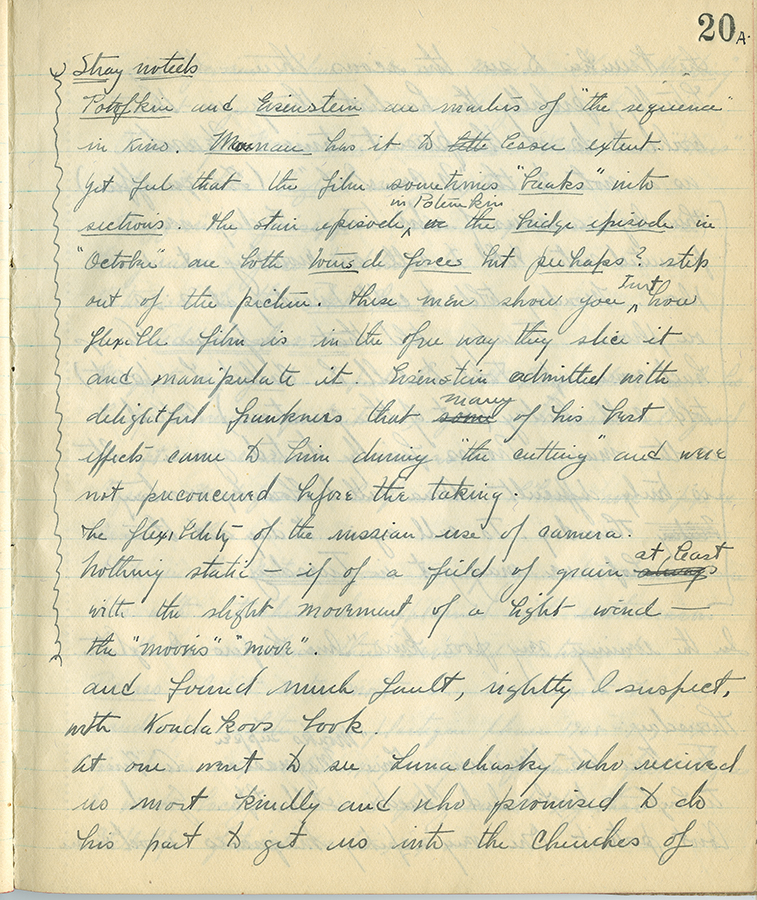 20A.
Stray noteds
Potofkin and Eisenstein are masters of "the sequence"
in Kino. Moornau has it to little lesser extent.
Yet feel that the film sometimes "breaks" into
sections. The stair episode, in Potemkin or the bridge episode in
"October" are both tours de forces but perhaps? step
out of the picture. These men show you Just how
flexible film is in the free way they slice it
and manipulate it. Eisenstein admitted with
delightful frankness that some many of his best
effects came to him during "the cutting" and were
not preconceived before the taking.
The flexibility of the russian use of camera.
Nothing static – if of a field of grain always at least
with the slight movement of a light wind —
the "movies" "move".
and found much fault, rightly I suspect,
with Kondakovs book.
At one went to see Lunacharsky who received
us most kindly and who promised to do
his part to get us into the churches of